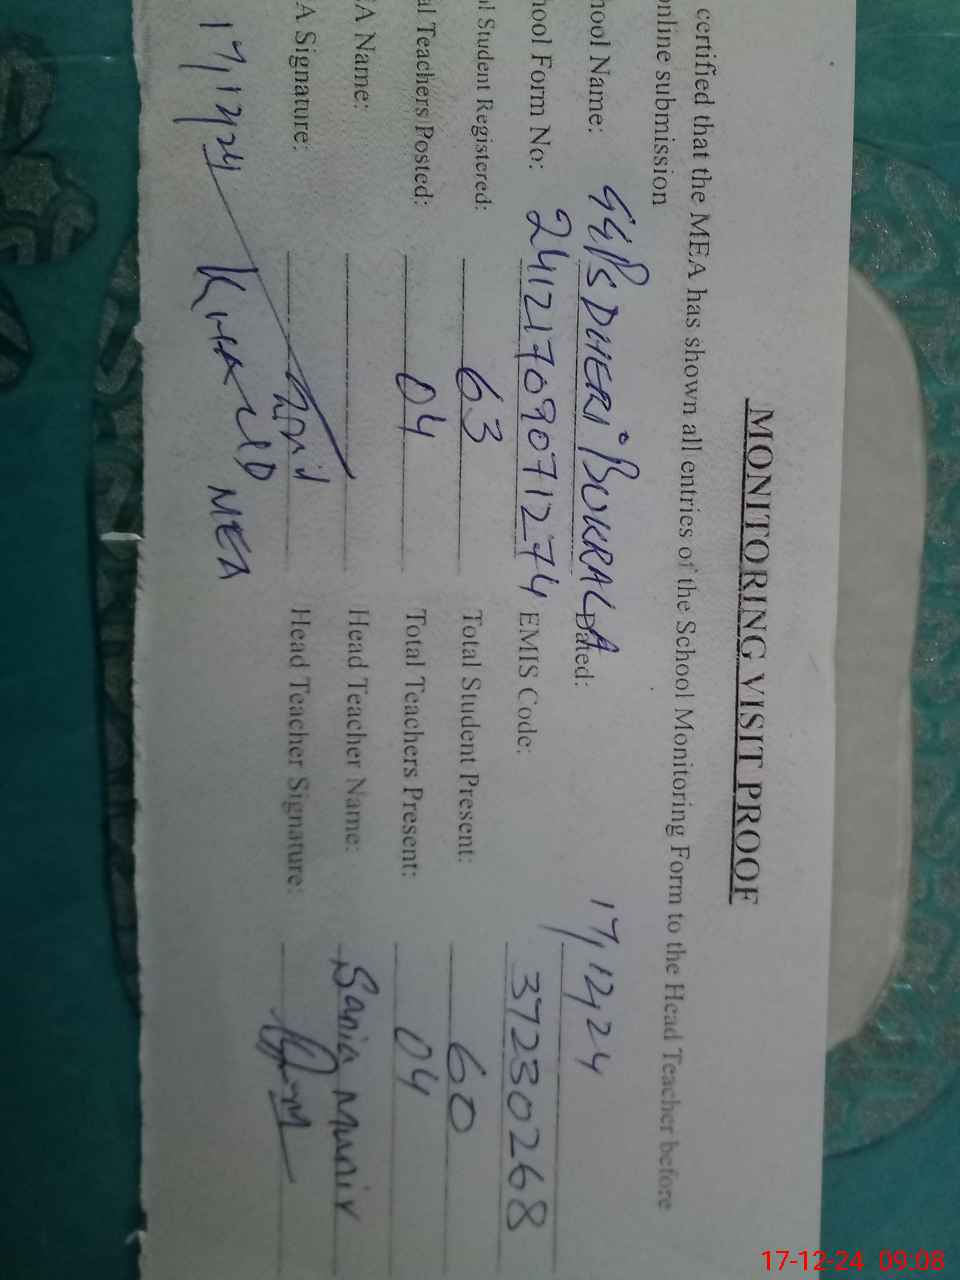 MONITORING VISIT PROOF
certified that the MEA has shown all entries of the School Monitoring Form to the Head Teacher before
nline submission
hool Name: GGPS DHERI BUKRALA Dated: 17/12/24
hool Form No: 24121709071274 EMIS Code: 37230268
al Student Registered: 63 Total Student Present: 60
al Teachers Posted: 04 Total Teachers Present: 04
EA Name: Head Teacher Name: Sania Munir
A Signature: Head Teacher Signature:
17/12/24 KHALID MEA
17-12-24 09:08